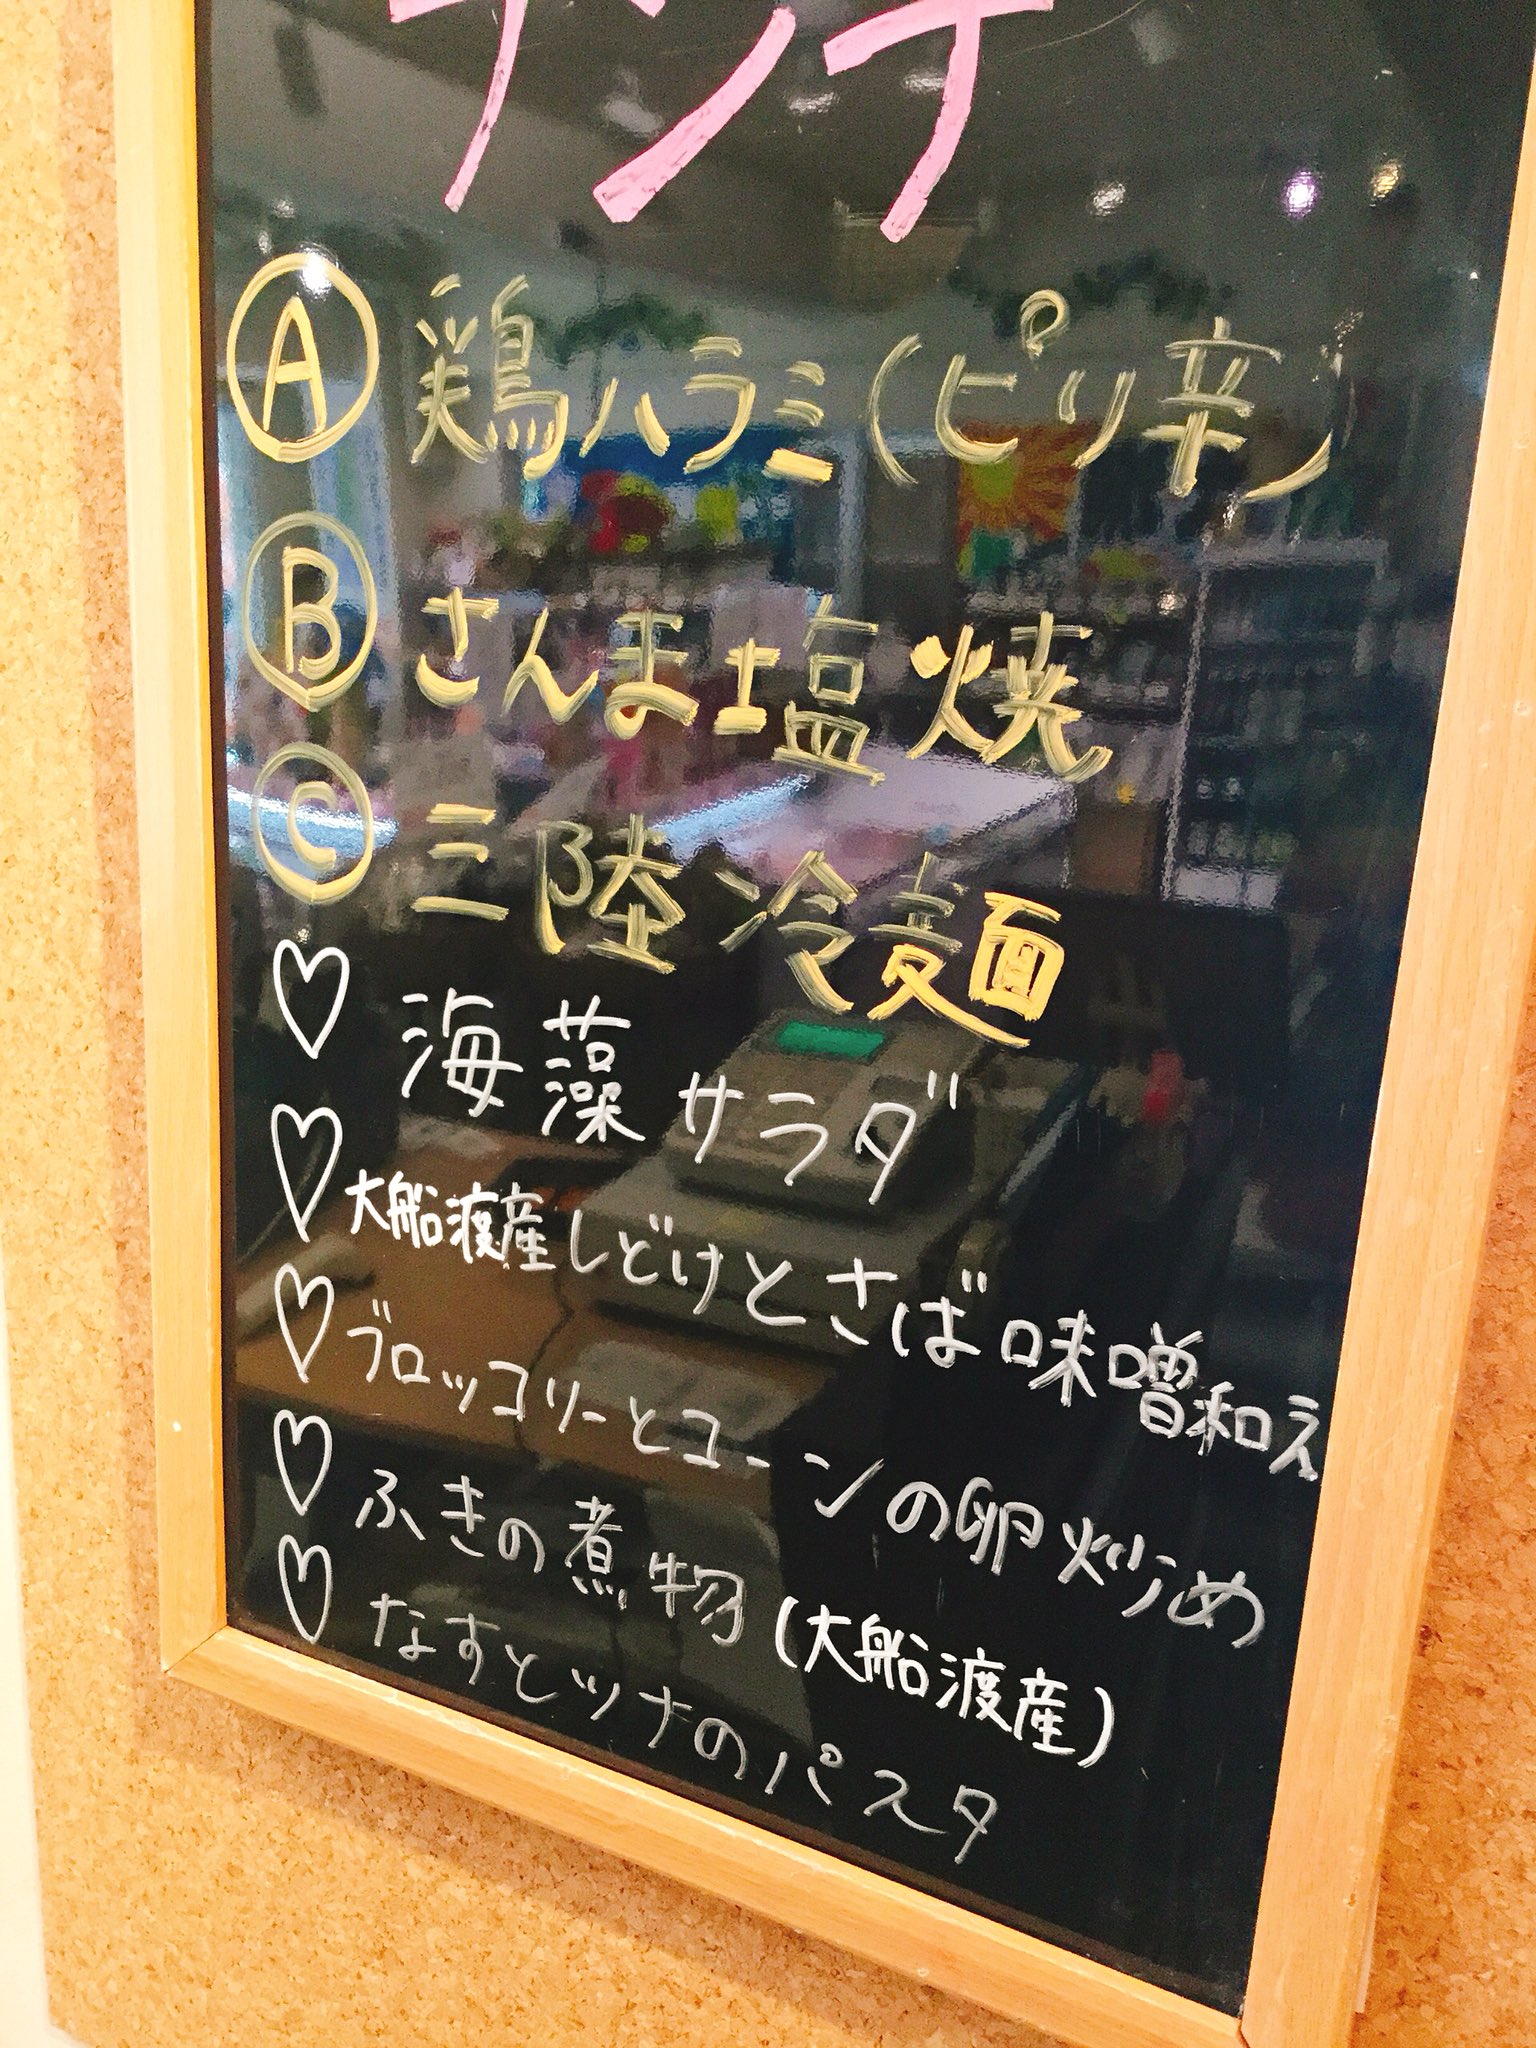 ランチ
Ⓐ 鶏ハラミ(ピリ辛)
Ⓑ さんま塩焼
Ⓒ 三陸冷麺
♡ 海藻サラダ
♡ 大船渡産しどけとさば味噌和え
♡ ブロッコリーとコーンの卵炒め
♡ ふきの煮物(大船渡産)
♡ なすとツナのパスタ